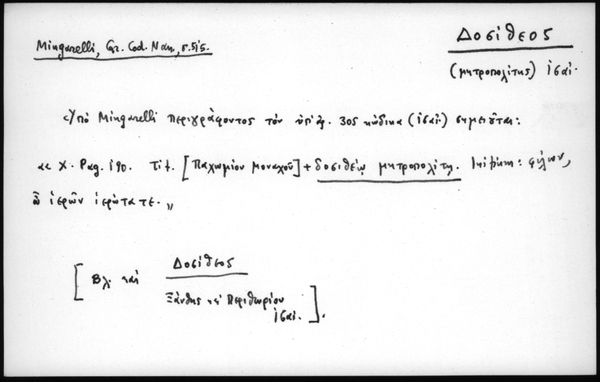 Mingarelli, Gr. Cod. Nan., σ. 515.
Δοσίθεος
(μητροπολίτης) ις΄ αἰ.
Ὑπὸ Mingarelli περιγράφοντος τὸν ὑπ' ἀρ. 305 κώδικα (ις΄ αἰ.) σημειοῦται:
« X. Pag. 190. Tit. [Παχωμίου Μοναχοῦ] + δοσιθέῳ μητροπολίτῃ. Incip: φίλων,
ὦ ἱερῶν ἱερώτατε.»
[Βλ. καὶ Δοσίθεος
Ξάνθης καὶ Περιθωρίου
ις΄ αἰ.].